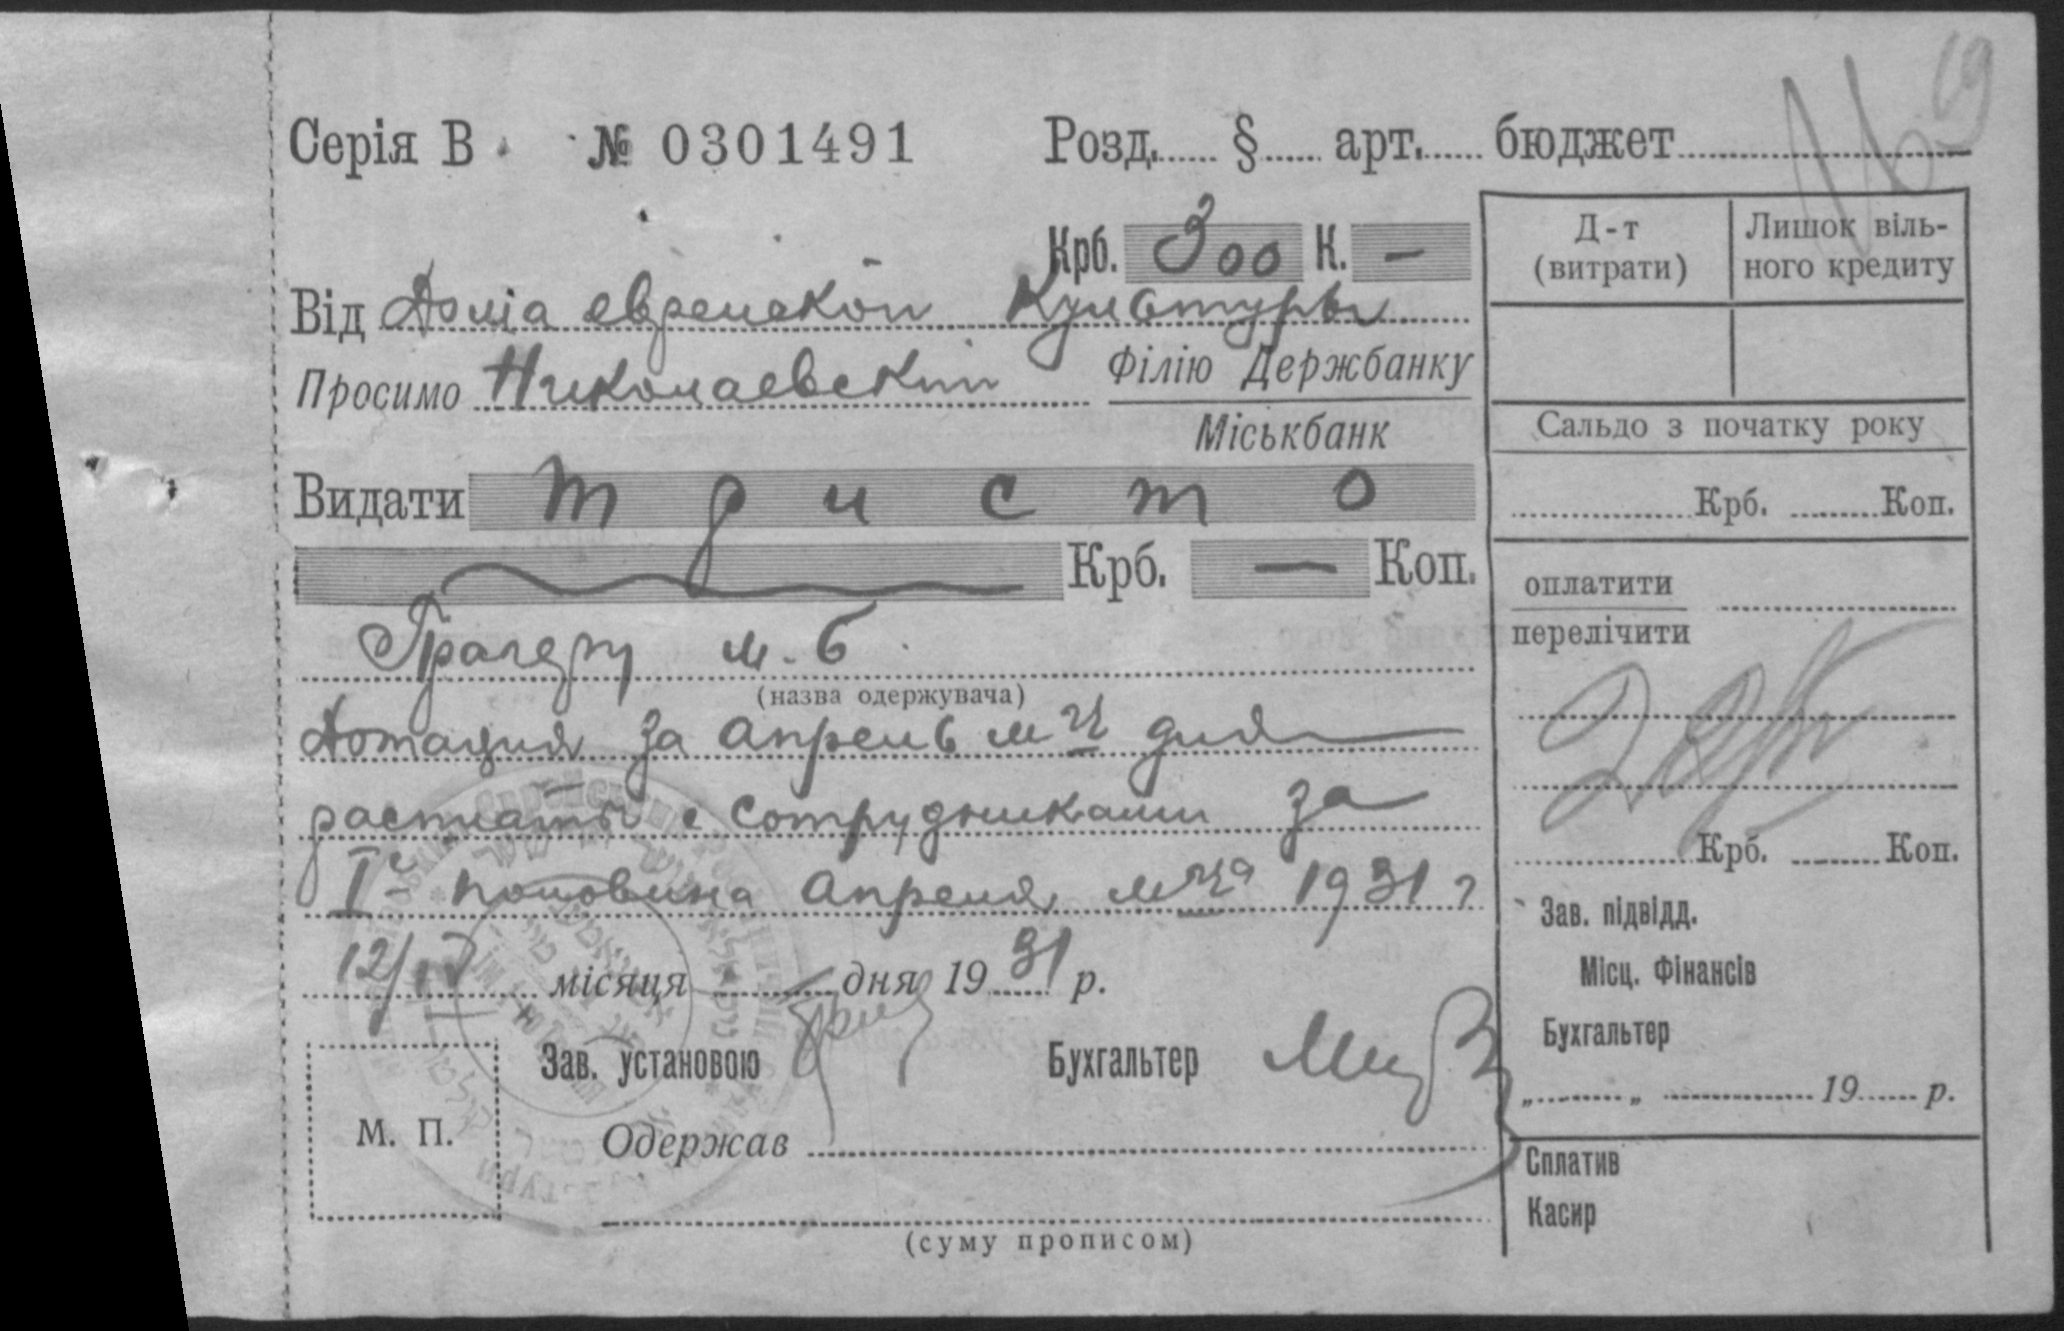 19
Серія В № 0301491 Розд. § арт. бюджет
Крб. 300 К. —
Від Дома еврейской Культуры
Просимо Николаевский Філію Держбанку
Міськбанк
Видати триста
Крб. — Коп.
м. Б.
(назва одержувача)
Дотация за апрель м-ц для
расплаты с сотрудниками за
I-ю половина апреля м-ца 1931 г
12/IV місяця дня 1931 р.
Зав. установою Бухгальтер
М. П.
Одержав
(суму прописом)
Д-т (витрати) Лишок віль-
ного кредиту
Сальдо з початку року
Крб. Коп.
оплатити
перелічити
Крб. Коп.
Зав. підвідд.
Місц. Фінансів
Бухгальтер
„ „ 19 р.
Сплатив
Касир